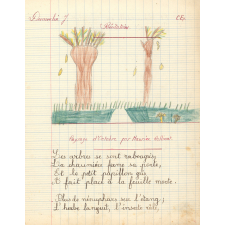 Récitation
Paysage d'Octobre par Maurice
Les arbres se sont rabougris,
La chaumière ferme sa porte,
Et le petit papillon gris
A fait place à la feuille morte.
Plus de nénuphars sur l'étang;
L'herbe languit, l'insecte râle,